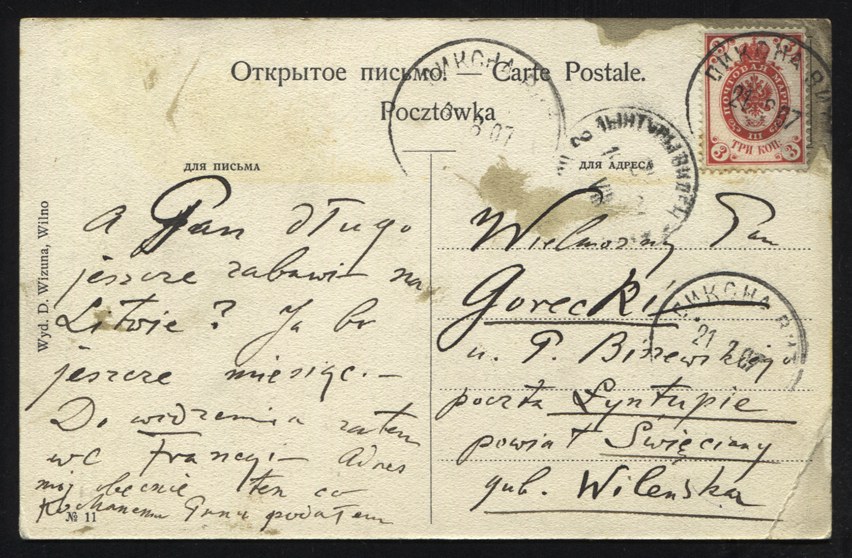 Открытое письмо. — Carte Postale.
Pocztówka
для письма
для адреса
ПОЧТОВАЯ МАРКА
3 ТРИ КОП. 3
21 07
Wyd. D. Wizuna, Wilno
A Pan długo
jeszcze zabawi na
Litwie? Ja bo
jeszcze miesiąc. —
Do widzenia zatem
we Francyi — Adres
mój obecnie ten co
Kochanemu Panu podałem
№ 11
Wielmożny Pan
Gorecki
u. P. Biszewskiego
poczta Łyntupie
powiat Święciany
gub. Wileńska